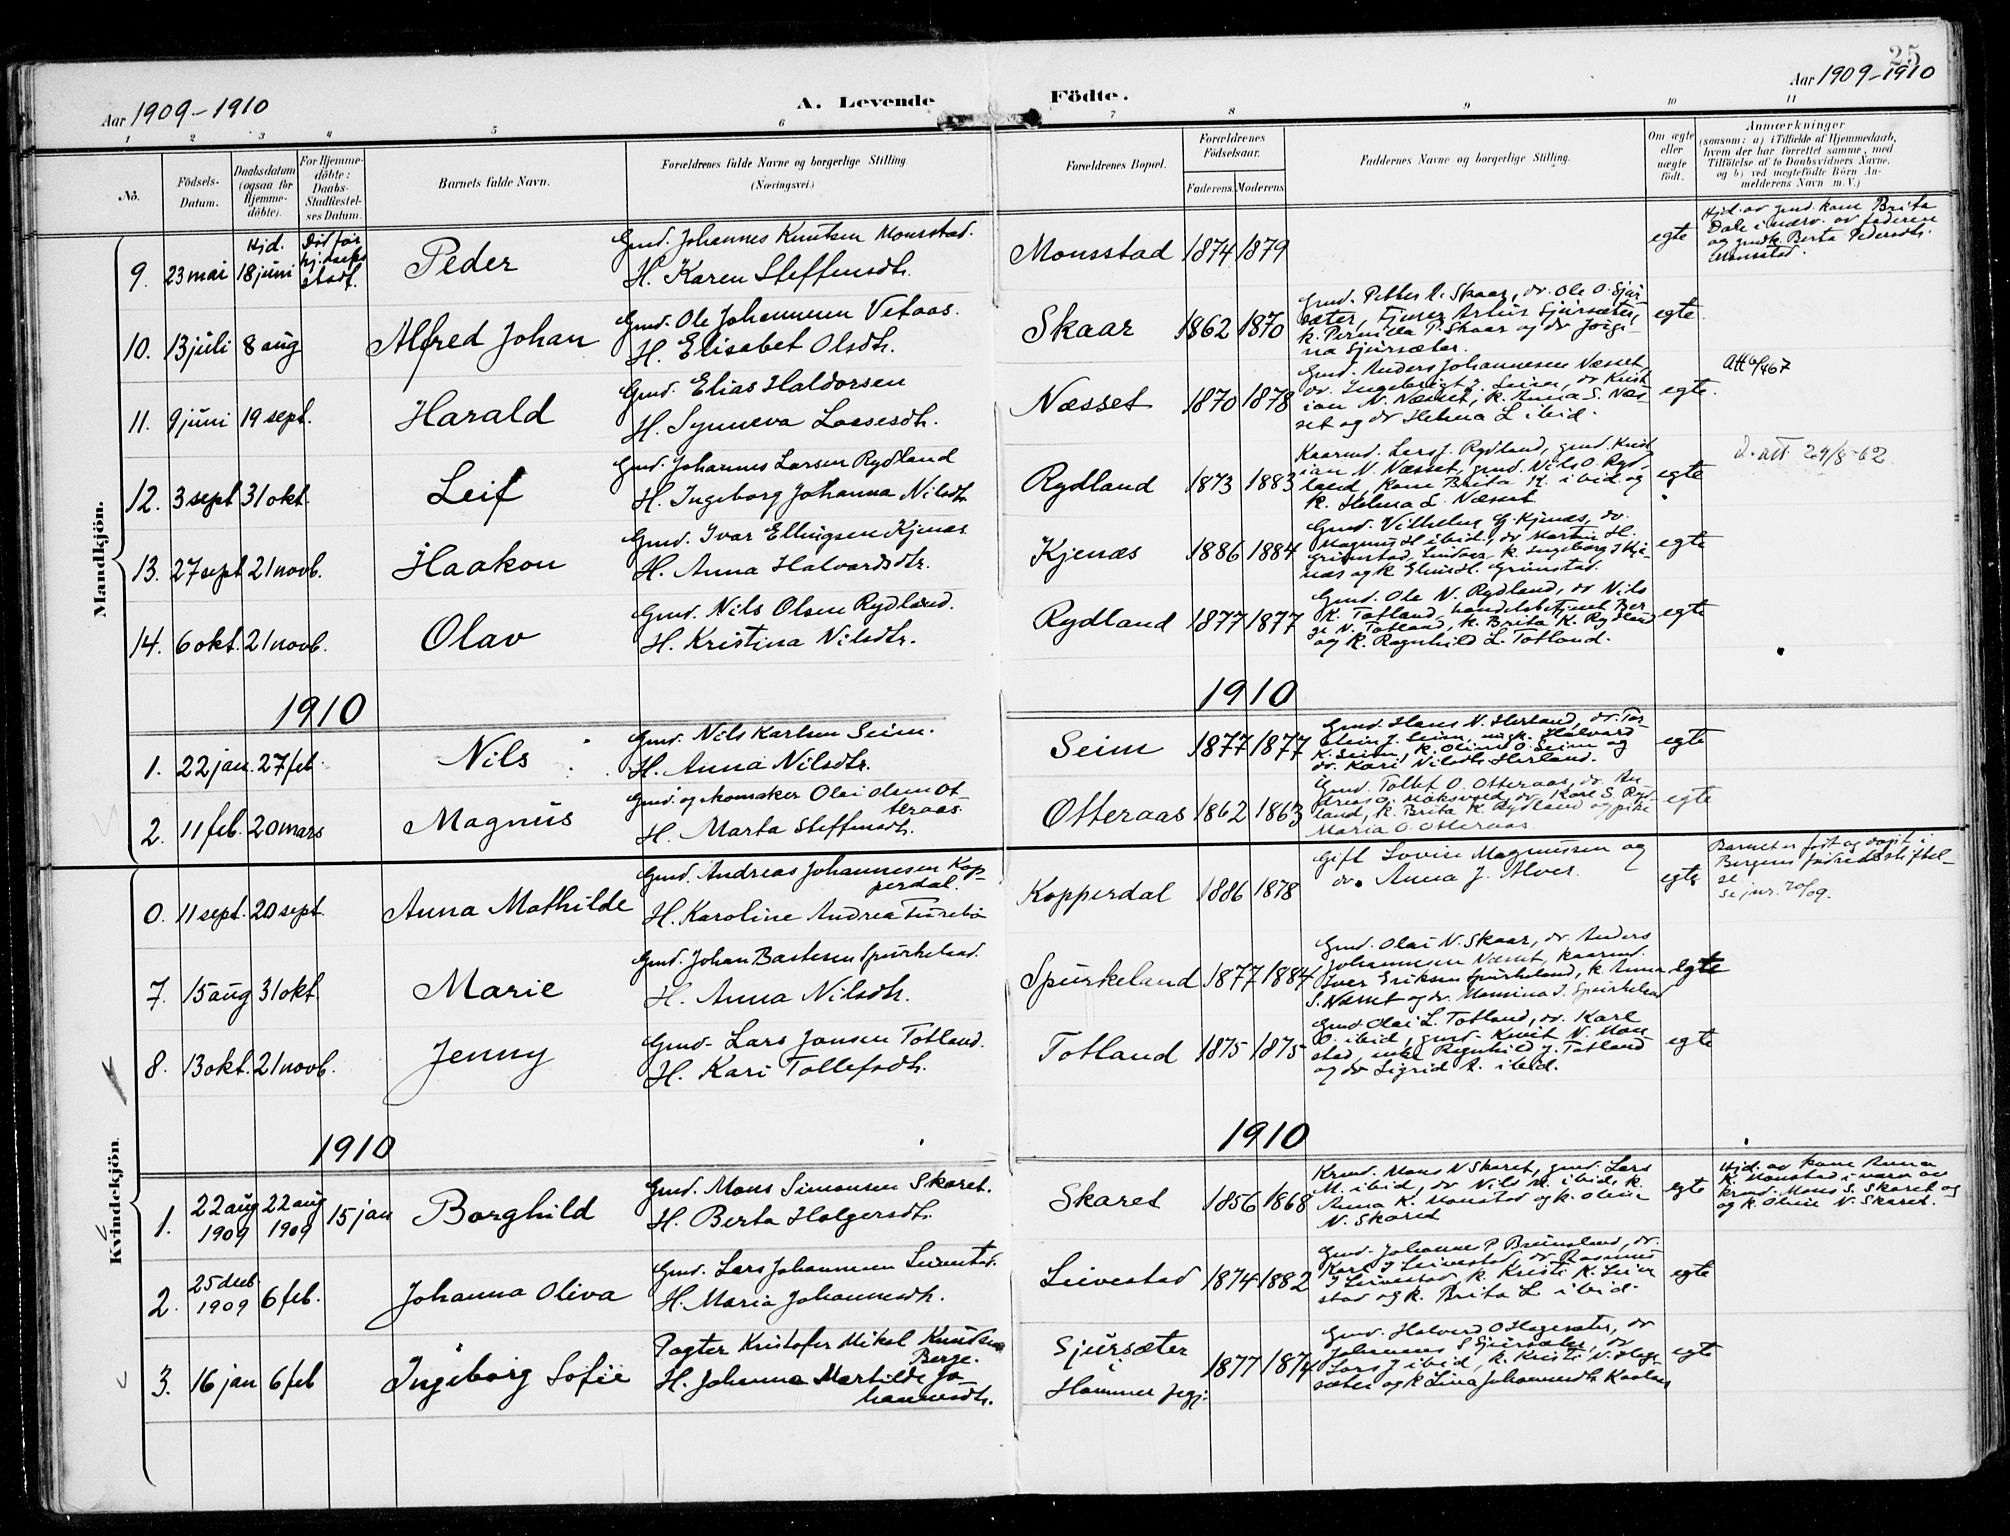 25
Aar 1909-1910
A. Levende Födte.
Aar 1909-1910
1 2 3 4 5 6 7 8 9 10 11
No.
Födsels-Datum.
Daabsdatum (ogsaa for Hjemmedöbte).
For Hjemmedöbte: Daabs-Stadfæstelses Datum.
Barnets fulde Navn.
Forældrenes fulde Navne og borgerlige Stilling. (Næringsvei.)
Forældrenes Bopæl.
Forældrenes Födselsaar.
Faderens. Moderens.
Faddernes Navne og borgerlige Stilling.
Om ægte eller uægte födt.
Anmærkninger
(saasom: a) i Tilfælde af Hjemmedaab, hvem der har forrettet samme, med Tilföielse af to Daabsvidners Navne, og b) ved uægtefödte Börn Anmelderens Navn m. V.)
Mandkjön.
9. 23 mai Hjd. 18 juni Död før hj.daabs stadf. Peder
Gmd. Johannes Knutsen Monsstad.
H. Karen Steffensdtr.
Monsstad 1874 1879 egte
Hjd. av gmd. kone Brita
Dale i nærv. av faderen
og gmdk. Berta Pedersdtr.
Monsstad.
10. 13 juli 8 aug Alfred Johan
Gmd. Ole Johannesen Vetaas.
H. Elisabet Olsdtr.
Skaar 1862 1870
Gmd. Petter A. Skaar, dr. Ole O. Sjur
sæter, Tjener Artur Sjursæter,
k. Pernilla P. Skaar og dr Jorgi-
na Sjursæter.
egte
11. 9 juni 19 sept. Harald
Gmd. Elias Haldorsen
H. Synneva Lassesdtr.
Næsset 1870 1878
Gmd. Anders Johannesen Næsset,
dr. Ingebrigt J. Seim, dr Krist
ian N. Næsset, k. Anna S. Næs-
set og dr Helena L ibid.
egte.
Att 6/4 67
12. 3 sept 31 okt. Leif
Gmd. Johannes Larsen Rydland
H. Ingeborg Johanna Nilsdtr
Rydland 1873 1883
Kaarmd. Lars J. Rydland, gmd. Krist
ian N. Næsset, gmd. Nils O. Ryd-
land, kone Brita K. ibid. og
k. Helena L. Næsset
egte
D. att 24/8-62
13. 27 sept 21 novb. Haakon
Gmd. Ivar Ellingsen Kjenæs
H. Anna Halvardsdtr.
Kjenæs 1886 1884
Gmd. Vilhelm E. Kjenæs, dr.
Magnus H ibid, dr Martin H.
Grimstad, Lindaas, k. Ingeborg I Kje-
næs og k Elen H. Grimstad.
egte
14. 6 okt. 21 novb. Olav
Gmd. Nils Olsen Rydland.
H. Kristina Nilsdtr.
Rydland 1877 1877
Gmd. Ole N. Rydland, dr Nils
K. Totland, handelsbetjent Ber
ge N. Totland, k. Brita K. Rydland
og k. Ragnhild L. Totland.
egte
1910 1910
1. 22 jan. 27 feb. Nils
Gmd. Nils Karlsen Seim.
H. Anna Nilsdtr.
Seim 1877 1877
Gmd. Hans N. Herland, dr. Tor
stein J. Seim, ungk. Halvard
K. Seim, k. Olina O. Seim og
dr. Kari Nilsdtr Herland.
egte
2. 11 feb. 20 mars Magnus
Gmd. og skomaker Olai Olsen Ot
teraas.
H. Marta Steffensdtr.
Otteraas 1862 1863
Gmd. Tollef O. Otteraas, dr. An
dreas O. Moksvold, dr. Karl S. Ryd-
land, k. Brita K. Rydland og pike
Maria O. Otteraas.
egte
Kvindekjön.
0. 11 sept. 20 sept. Anna Mathilde
Gmd. Andreas Johannesen Kop-
perdal.
H. Karoline Andrea Turebö
Kopperdal 1886 1878
Gift Lovise Magnussen og
dr. Anna J. Alver.
egte
Barnet er født og døpt i
Bergens fødselsstiftel-
se.
Se jnr. 70/09.
7. 15 aug 31 okt. Marie
Gmd. Johan Bastesen Spurkeland.
H. Anna Nilsdtr.
Spurkeland 1877 1884
Gmd. Olai N. Skaar, dr. Anders
Johannesen Næsset, kaarmd.
Iver Eriksen Spurkeland, k. Anna
S. Næsset og dr. Monsina I. Spurkeland
egte
8. 13 okt. 21 novb. Jenny
Gmd. Lars Jonsen Totland.
H. Kari Tollefsdtr.
Totland 1875 1875
Gmd. Olai L. Totland, dr. Karl
O. ibid, gmd. Knut N. Mon
stad, enke Ragnhild J. Totland
og dr Sigrid A. ibid.
egte
1910 1910
1. 22 aug 1909 22 aug 1909 15 jan Borghild
Gmd. Mons Simonsen Skaret.
H. Berta Holgersdtr.
Skaret 1856 1868
Krmd. Mons N Skaret, gmd. Lars
M. ibid, dr Nils M. ibid, k.
Anna K. Monstad og k. Oline
N. Skaret
egte
Hjd. av kone Anna
K. Monstad i nærv av
krmd. Mons S. Skaret og
og k. Oline N. Skaret.
2. 25 decb. 1909 6 feb. Johanna Oliva
Gmd. Lars Johannesen Leivestad.
H. Maria Johannesdtr.
Leivestad 1874 1882
Gmd. Johannes P Bruneland, dr.
Karl I Leivestad, dr Rasmus
I Leivestad, k. Kristi K. Leive
stad og k. Brita L. ibid.
egte
3. 16 jan 6 feb Ingeborg Sofie
Pagter Kristofer Mikal Knudsen
Berge.
H. Johanna Martilde Jo
hannesdtr.
Sjursæter i Hammer pgj. 1877 1874
Gmd. Halvard O Hagesæter, dr
Johannes S Sjursæter, dr
Lars J ibid, k. Kristi N. Hage
sæter og k Lina Johannesdtr
egte